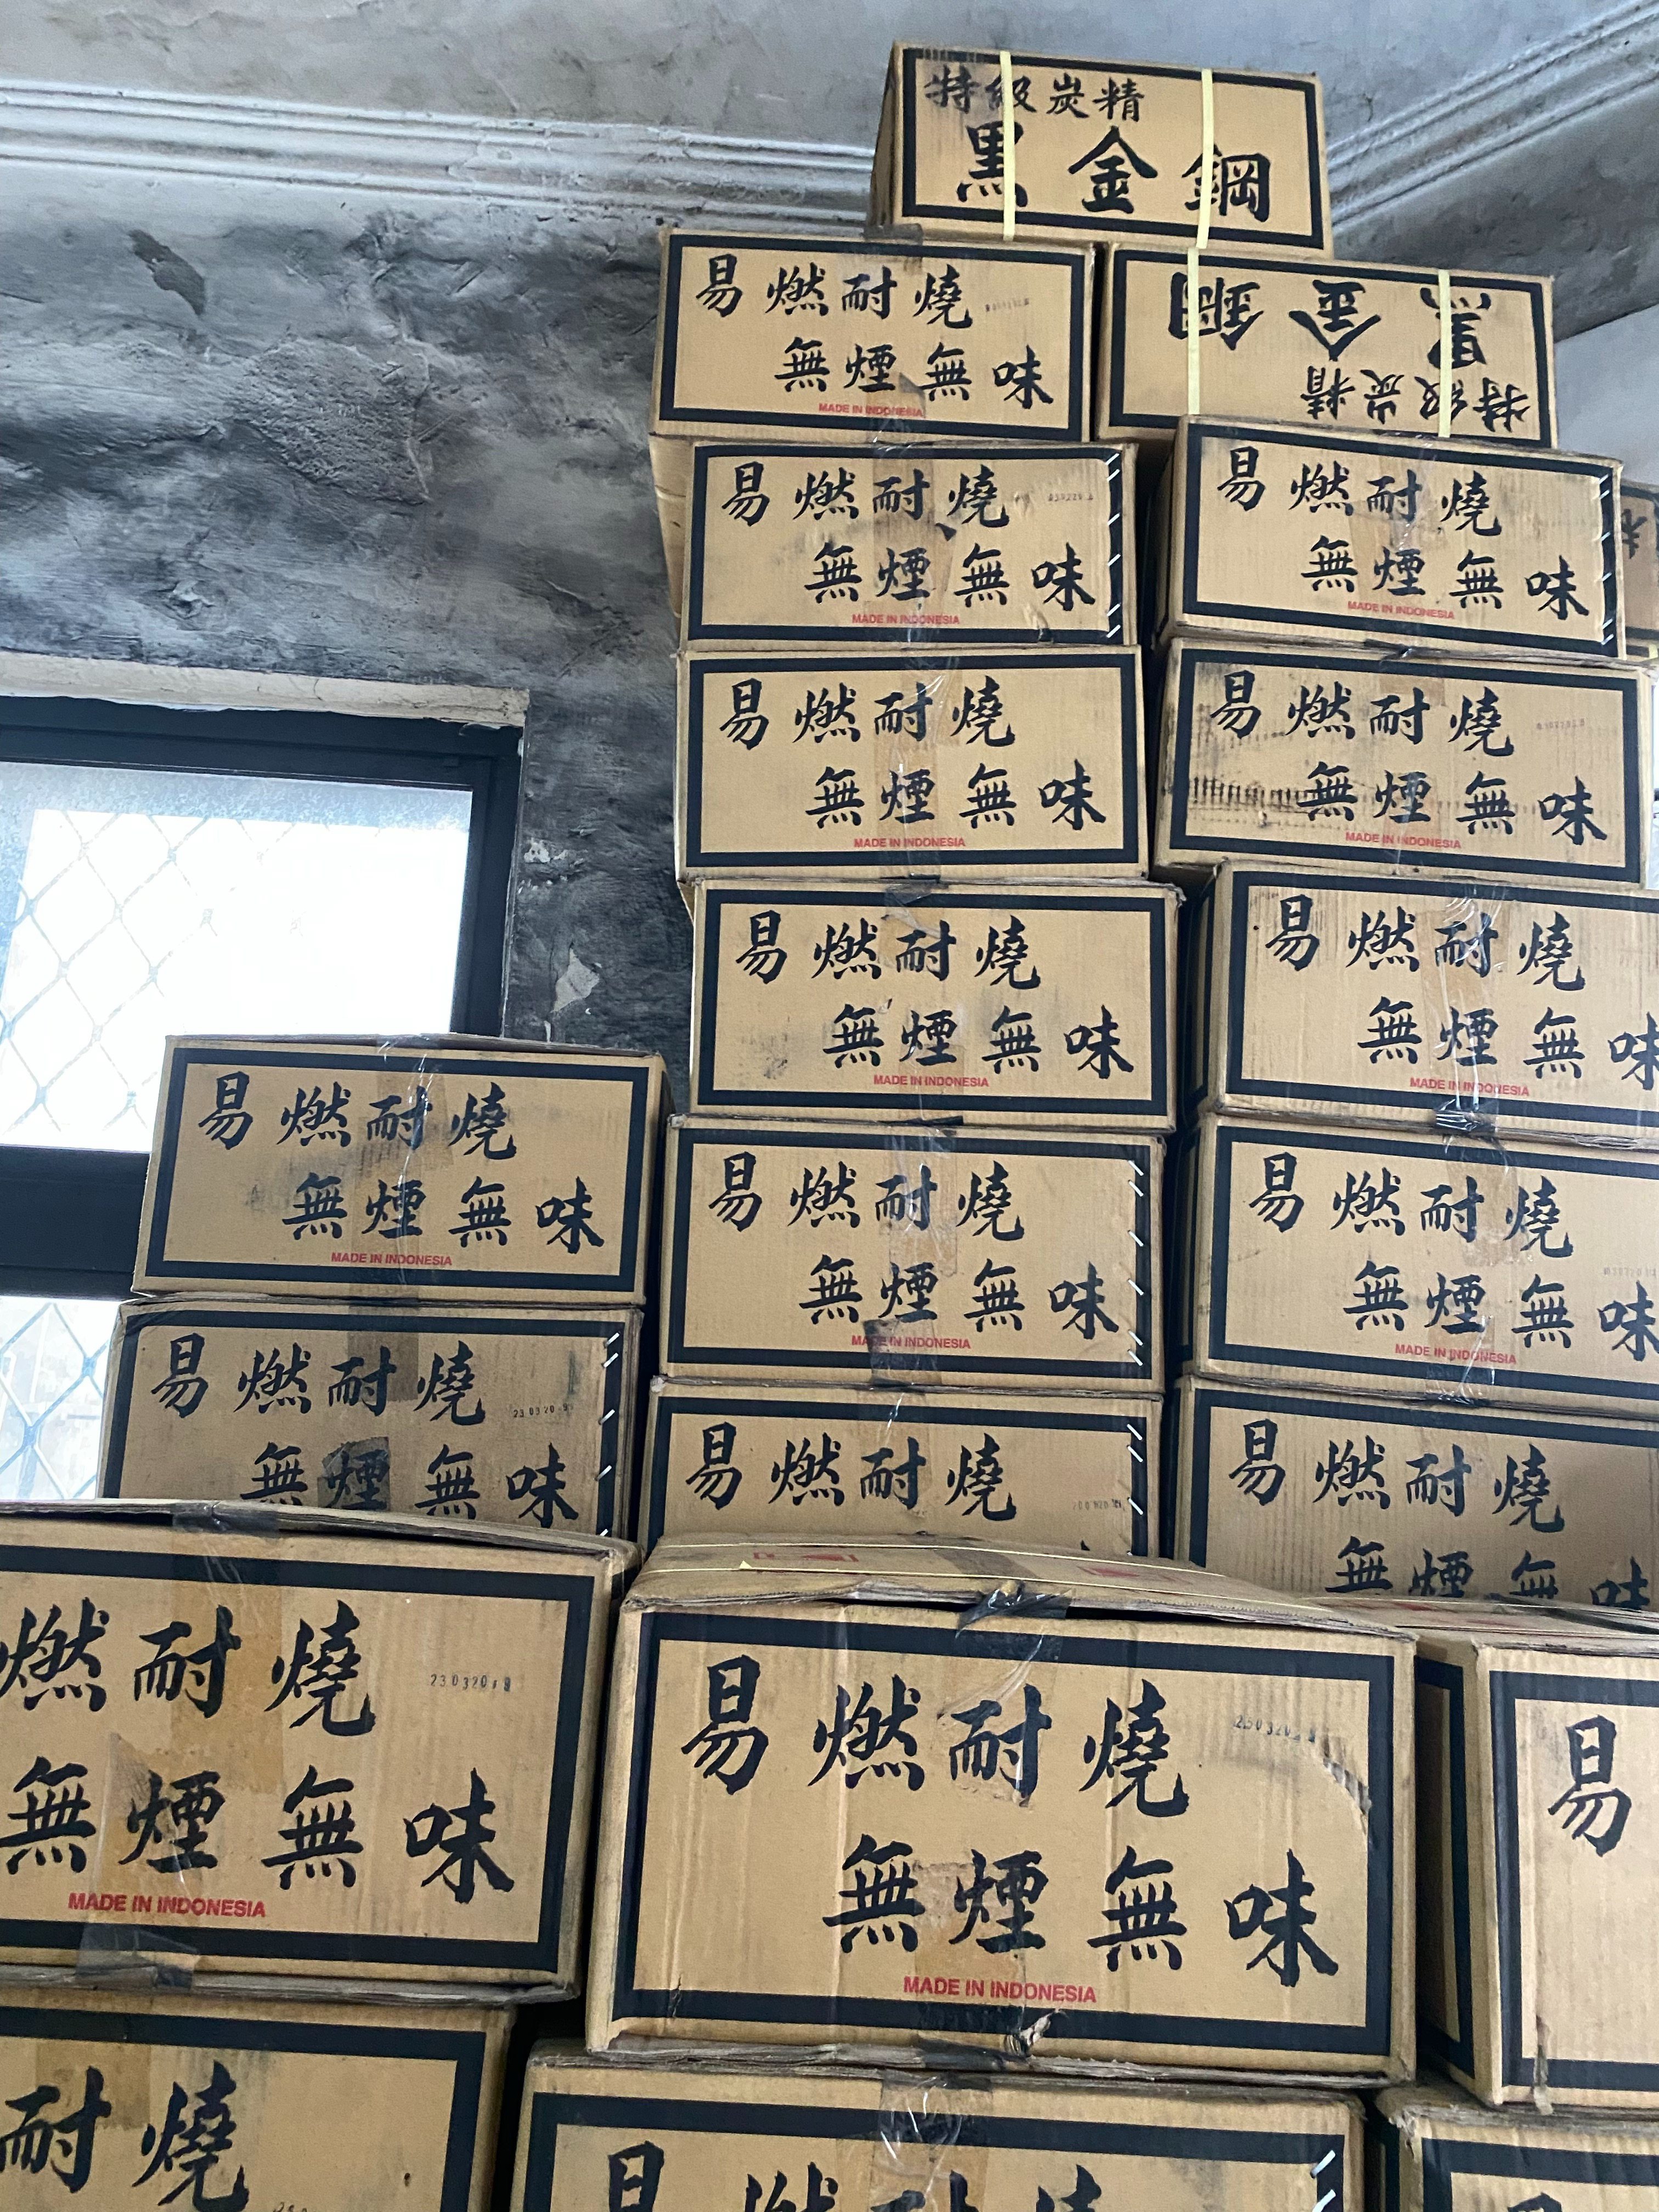 特級炭精
黑金鋼
易燃耐燒
無煙無味
MADE IN INDONESIA
黑金鋼
特級炭精
易燃耐燒
無煙無味
MADE IN INDONESIA
易燃耐燒
無煙無味
MADE IN INDONESIA
易燃耐燒
無煙無味
MADE IN INDONESIA
易燃耐燒
無煙無味
MADE IN INDONESIA
易燃耐燒
無煙無味
MADE IN INDONESIA
易燃耐燒
無煙無味
MADE IN INDONESIA
易燃耐燒
無煙無味
MADE IN INDONESIA
易燃耐燒
無煙無味
MADE IN INDONESIA
易燃耐燒
無煙無味
MADE IN INDONESIA
易燃耐燒
無煙無味
易燃耐燒
易燃耐燒
無煙無味
燃耐燒
無煙無味
MADE IN INDONESIA
易燃耐燒
無煙無味
MADE IN INDONESIA
易
耐燒
易